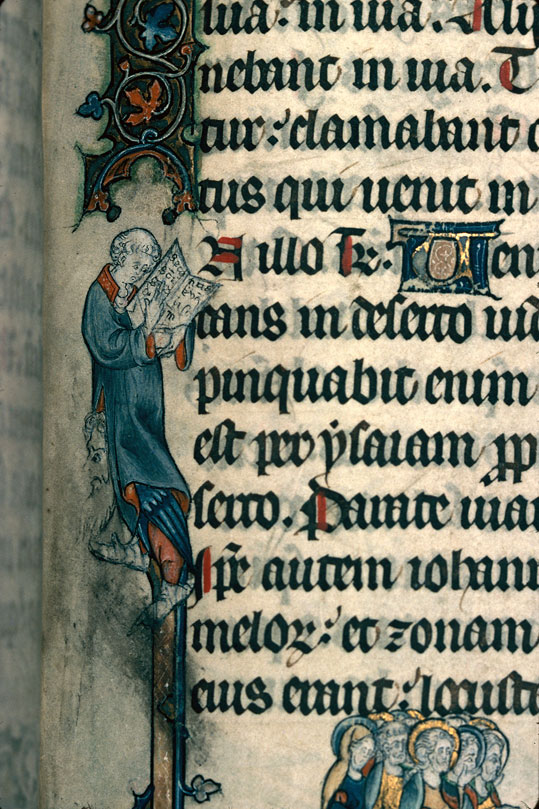 lua. in uia. Alii
nebant in uia. T
tur: clamabant
tus qui uenit in
A illo Tr. Ueni
cans in deserto uid
pinquabit enim
est per ysaiam
serto. Parate uiam
Ipse autem iohann
meloꝝ: et zonam
eius erant: locuste